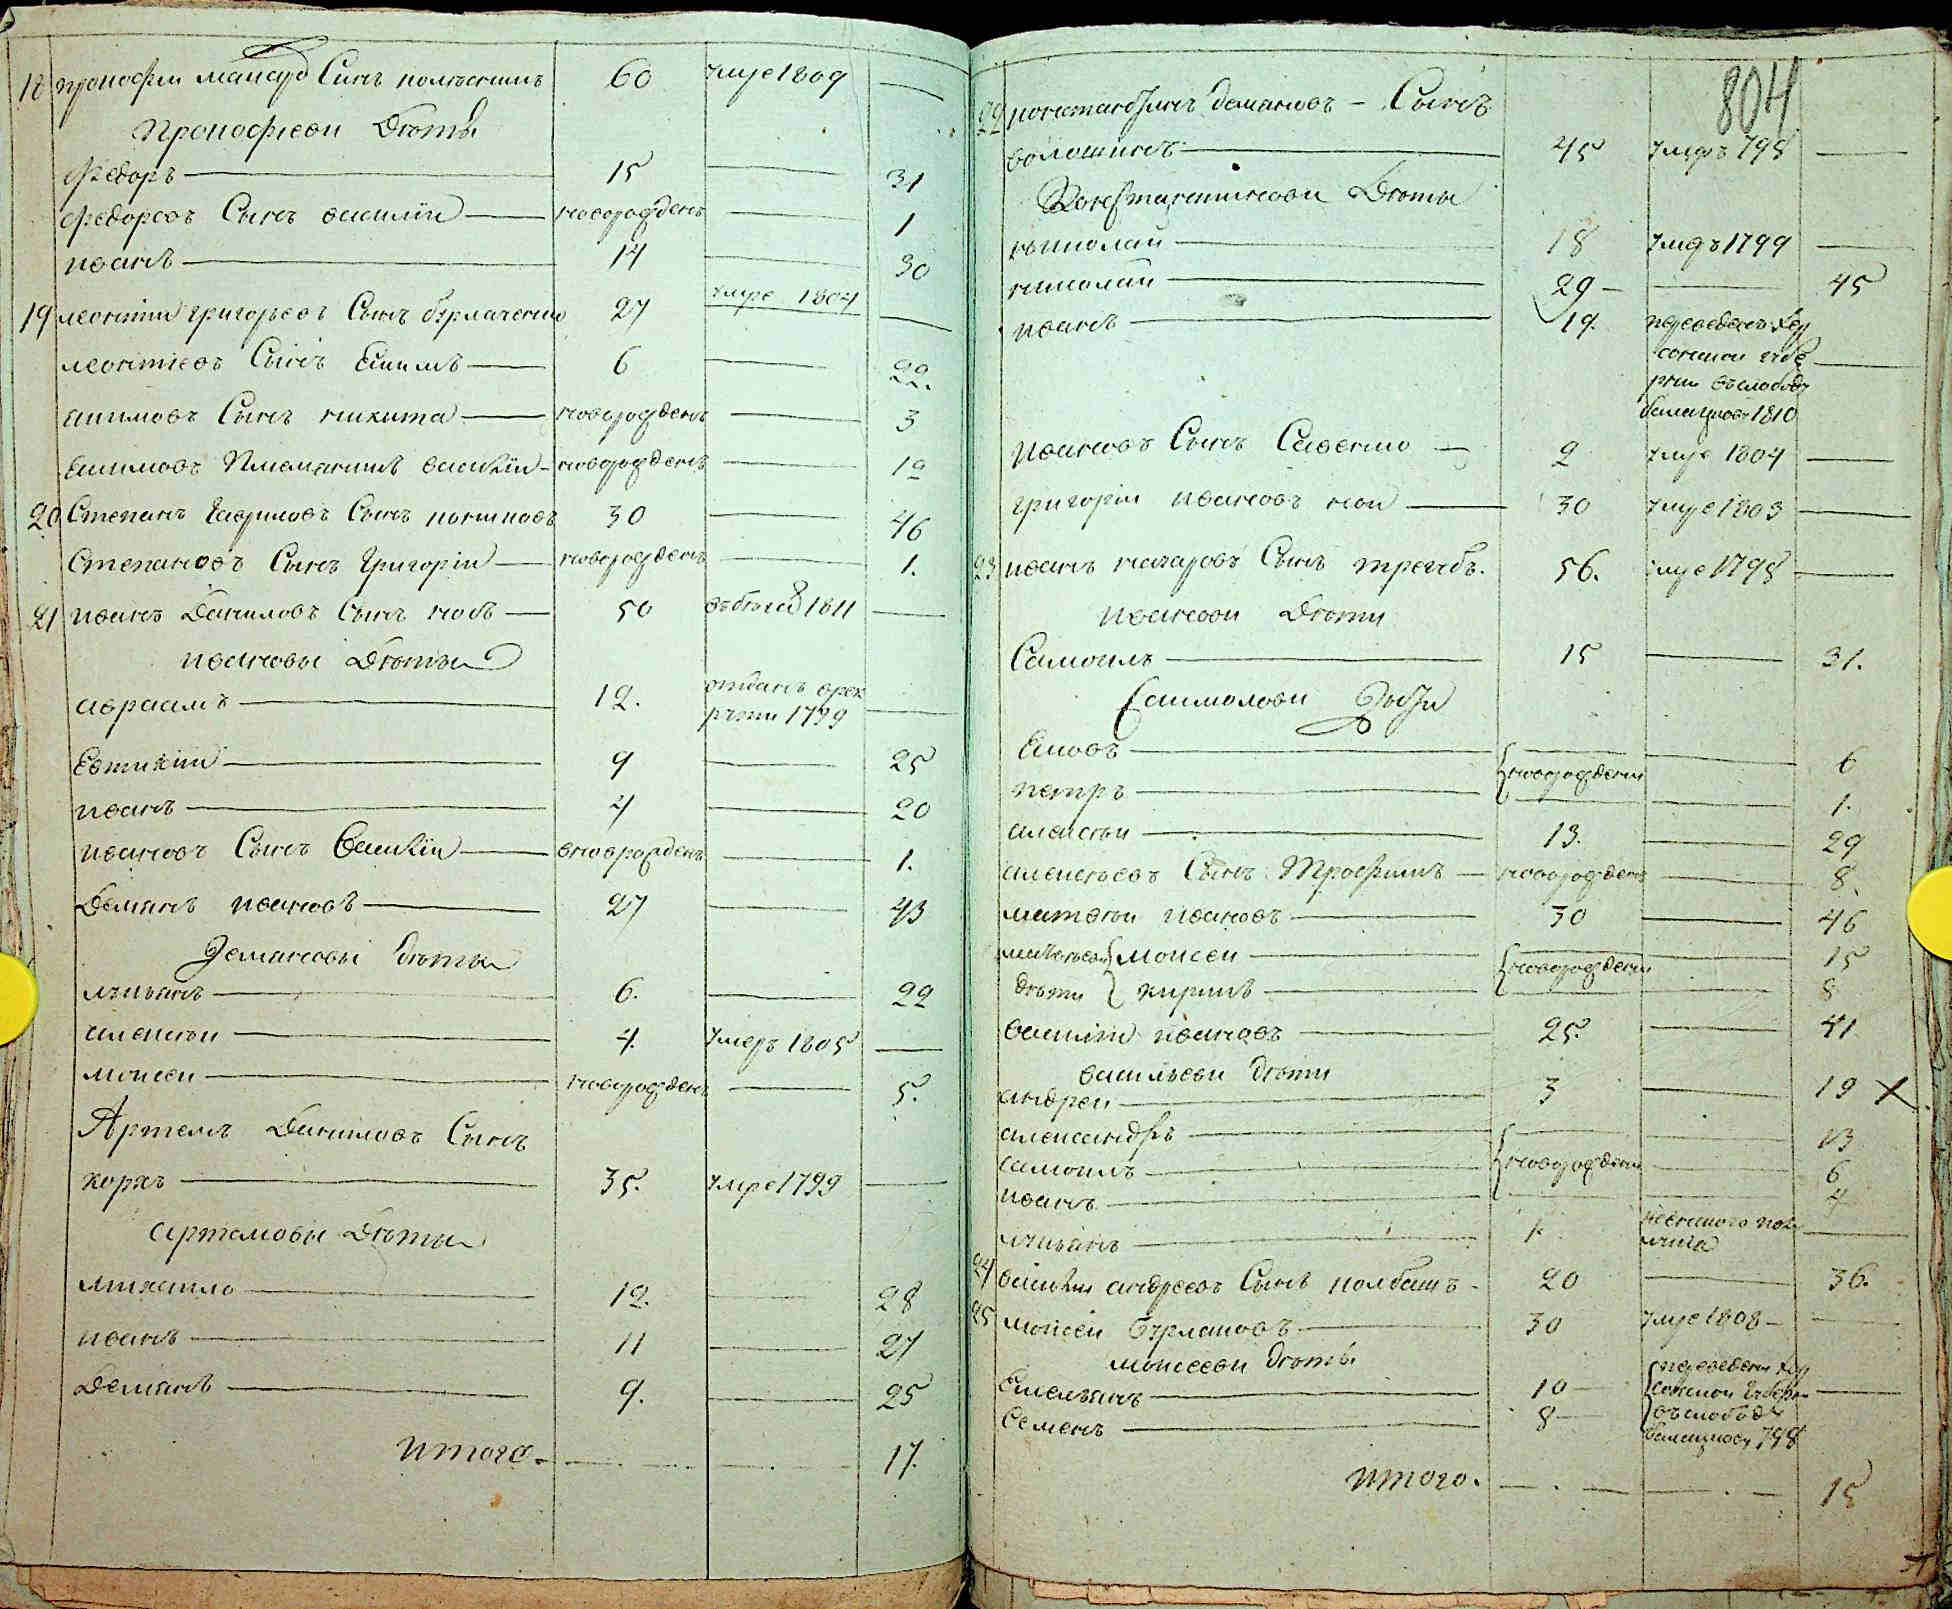 18 прокофий макаръ Сынъ полтинникъ 60 умре 1809
прокофиеви Дѣти
Федоръ 15 31
Федоровъ Сынъ василiй новорожденъ 1
иванъ 14 30
19 леонтий григорьевъ Сынъ бурлаченко 27 умре 1804
леонтиевъ Сынъ Екимъ 6 22.
акимовъ Сынъ никита новорожденъ 3
Екимовъ племянникъ василiй новорожденъ 12
20 Степанъ гавриловъ Сынъ 30 46
Степановъ Сынъ григорiй новорожденъ 1.
21 иванъ даниловъ Сынъ 50 въ бѣгах 1811
ивановы Дѣти
авраамъ 12. отданъ врек
руты 1799
Евтихiй 9 25
иванъ 4 20
ивановъ Сынъ василiй новорожденъ 1.
Демянъ ивановъ 27 43
Демяновы дѣти
лукьянъ 6. 22
алексѣй 4. умеръ 1805
моисей новорожденъ 5.
Артемъ Даниловъ Сынъ
коржъ 35. умре 1799
артемовы Дѣти
михайло 12. 28
иванъ 11 27
Демянъ 9. 25
итого. 17.
804
22 константинъ демяновъ Сынъ
волошинъ 45 умеръ 795
Константинови Дѣти
николай 18 умеръ 1799
николай 29 45
иванъ 19. переведенъ хер
сонской губе
рнии въ слободу
1810
ивановъ Сынъ Савелий 2 умре 1804
григорiй ивановъ 30 умре 1803
23 иванъ назаровъ Сынъ 56. умре 1795
иванови Дѣти
Самоилъ 15 31.
Самоилови Дѣти
Яковъ 6
петръ новорождени 1.
алексѣй 13. 29
алексѣевъ Сынъ Трофимъ новорожденъ 8.
матвѣй ивановъ 30 46
матвѣеви моисей 15
дѣти кирилъ новорождени 8
василiй ивановъ 25. 41
васильеви дѣти
андрей 3 19 х
александръ 13
самоилъ новорождени 6
иванъ 4
лукьянъ 1.
24 василий андреевъ Сынъ колбашъ 20 36.
25 моисей бурлаковъ 30 умре 1808
моисееви дѣти
Емельянъ 10 переведени хер
сонской губерн
Семенъ 8 въ слободу
798
итого. 15